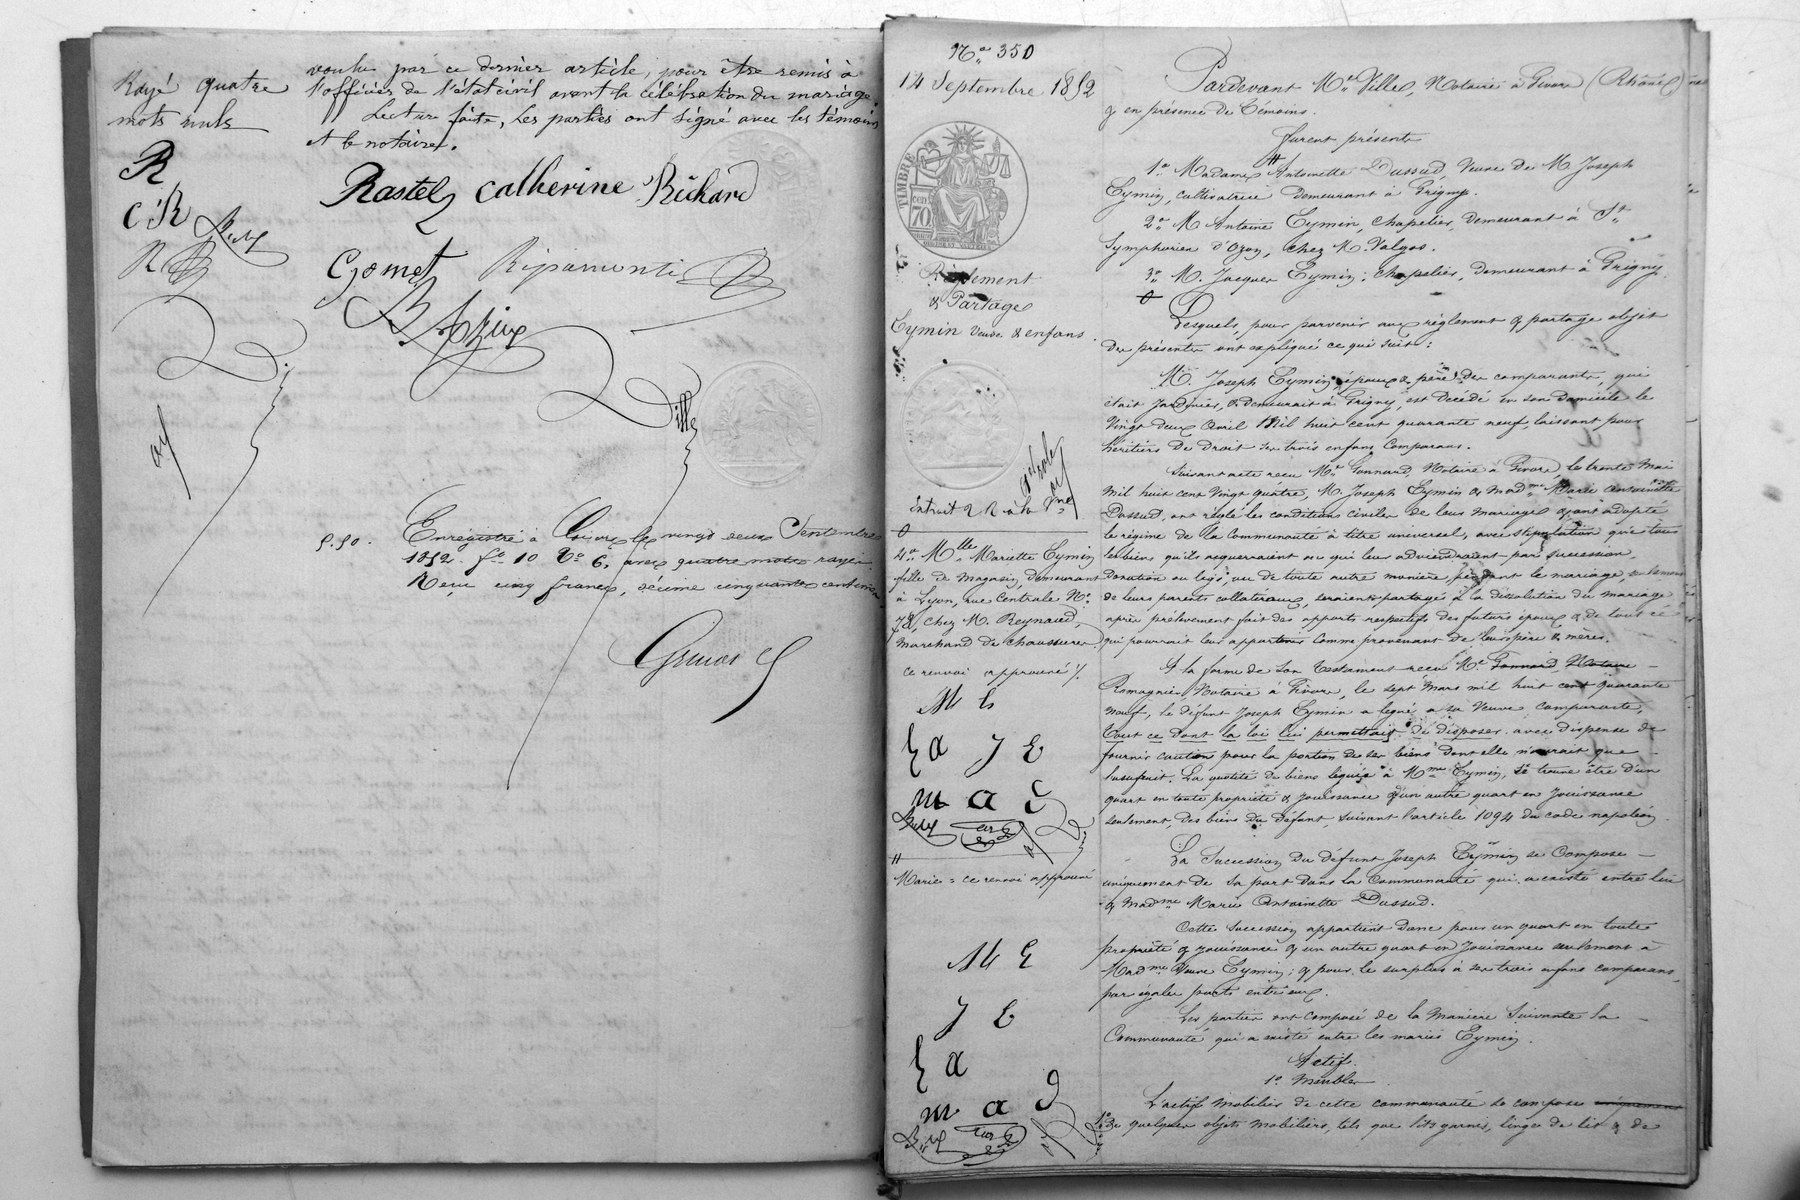 Rayé quatre
mots nuls
R
C R
voulu par ce dernier article, pour être remis à
l'officier de l'état civil avant la célébration du mariage.
Lecture faite, les parties ont signé avec les témoins
et le notaire.
Rastel Catherine Richard
Gomet Ripamonti
Ville
5.50.
Enregistré à Givors le vingt deux Septembre
1852 fo 10 Vo 6, avec quatre mots rayés.
Reçu cinq francs, décime cinquante centimes
No 350
14 Septembre 1852
TIMBRE
cen 70
Règlement
& Partage
Eymin veuve & enfans.
4o Mlle Mariette Eymin
fille de magasin, demeurant
à Lyon, rue Centrale No
78, chez M. Reynaud,
marchand de chaussures
ce renvoi approuvé /.
M E
E A J E
m a
Marie = ce renvoi approuvé
M E
J E
E A
m a d
Pardevant Me Ville, Notaire à Givors (Rhône)
& en présence de Témoins.
Furent présents
1o Madame Antoinette Dussud, Veuve de M. Joseph
Eymin, cultivatrice demeurant à Grigny.
2o M. Antoine Eymin, Chapelier, demeurant à St
Symphorien d'Ozon, chez M.
3o M. Jacques Eymin, Chapelier, demeurant à Grigny
Lesquels, pour parvenir aux règlement & partage objet
des présentes ont expliqué ce qui suit:
M. Joseph Eymin, époux & père des comparants, qui
était Jardinier, & demeurait à Grigny, est décédé en son domicile le
vingt deux Avril Mil huit cent quarante neuf, laissant pour
héritiers de Droit ses trois enfans comparans.
Suivant acte reçu Me Gonnard, Notaire à Givors, le trente Mai
mil huit cent vingt quatre, M. Joseph Eymin & Madme Marie Antoinette
Dussud, ont réglé les conditions civiles de leur mariage ayant adopté
le régime de la Communauté à titre universel, avec stipulation que tous
les biens qu'ils acquerraient ou qui leur adviendraient par succession,
Donation ou legs, ou de toute autre manière pendant le mariage,
de leurs parents collatéraux, seraient partagés à la dissolution du mariage
après prélèvement fait des apports respectifs des futurs époux & de tout ce
qui pourrait leur appartenir comme provenant de leurs père & mère.
A la forme de son testament reçu Me Gonnard Notaire
Romagnier Notaire à Givors, le sept Mars mil huit cent quarante
neuf, le défunt Joseph Eymin a légué à sa veuve comparante,
tout ce dont la loi lui permettait de disposer avec dispense de
fournir caution pour la portion de ses biens dont elle n'aurait que
l'usufruit. La quotité de biens léguée à Mme Eymin, se trouve être d'un
quart en toute propriété & jouissance & d'un autre quart en jouissance
seulement, des biens du défunt, suivant l'article 1094 du code napoléon.
La Succession du défunt Joseph Eymin se Compose
uniquement de sa part dans la Communauté qui a existé entre lui
& Madme Marie Antoinette Dussud.
Cette Succession appartient donc pour un quart en toute
propriété & jouissance & un autre quart en jouissance seulement à
Madme Veuve Eymin; & pour le surplus à ses trois enfans comparans,
par égales parts entr'eux.
Les parties ont composé de la Manière Suivante la
Communauté qui a existé entre les mariés Eymin.
Actif.
1o Meubles
L'actif mobilier de cette communauté se compose uniquement
de quelques objets mobiliers, tels que lits garnis, linges de lit & de